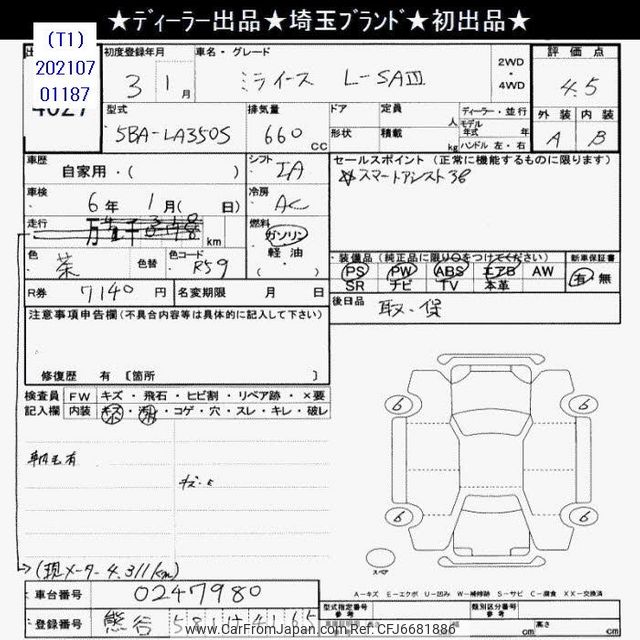 ★ディーラー出品★埼玉ブランド★初出品★
(T1)
202107
01187
4027
初度登録年月
3年 1月
車名・グレード
ミライース L-SAⅢ
2WD
・
4WD
評価点
4.5
外装 内装
A B
型式
5BA-LA350S
排気量
660 CC
ドア
形状
定員 人
積載 kg
ディーラー・並行
モデル
年式 年
ハンドル 左・右
車歴
自家用・( )
シフト
IA
車検
6年 1月( 日)
冷房
AC
セールスポイント(正常に機能するものに限ります)
☆スマートアシスト
走行
万 千 km
燃料
ガソリン
軽油
色
茶
色替
色コード
R59
・装備品(純正品に限り○をつけてください)
PS PW ABS エアB AW
SR ナビ TV 本革
新車保証書
有 無
R券 7140円
名変期限 月 日
後日品
取・保
注意事項申告欄(不具合内容等は具体的に記入して下さい)
修復歴 有〔箇所 〕
検査員 FW キズ・飛石・ヒビ割・リペア跡・×要
記入欄 内装 キズ・汚れ・コゲ・穴・スレ・キレ・破レ
6
6
6
6
スペア
(現メーター4,311km)
A-キズ E-エクボ U-凹み W-補修跡 S-サビ C-腐食 XX-交換済
車台番号 0247980
登録番号 熊谷
型式指定番号
参考
類別区分番号
参考
長さ
cm
幅
cm
高さ
cm
www.CarFromJapan.com Ref: CFJ6681886